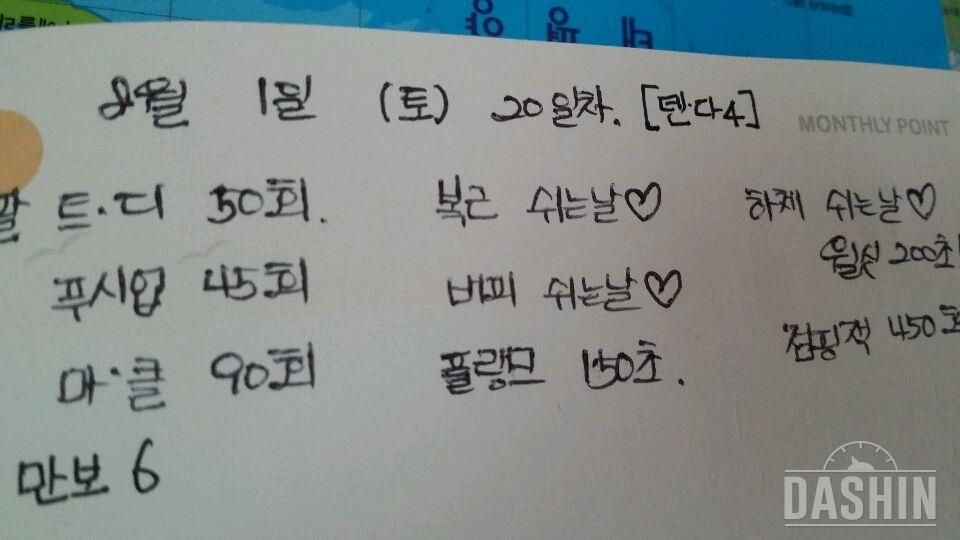 8월 1일 (토) 20일차. [텐·다4]
MONTHLY POINT
팔 트·디 50회. 복근 쉬는날♡ 하체 쉬는날♡
월싯 200초
푸시업 45회 버피 쉬는날♡
점핑잭 450회
마·클 90회 플랭크 150초.
만보 6
DASHIN